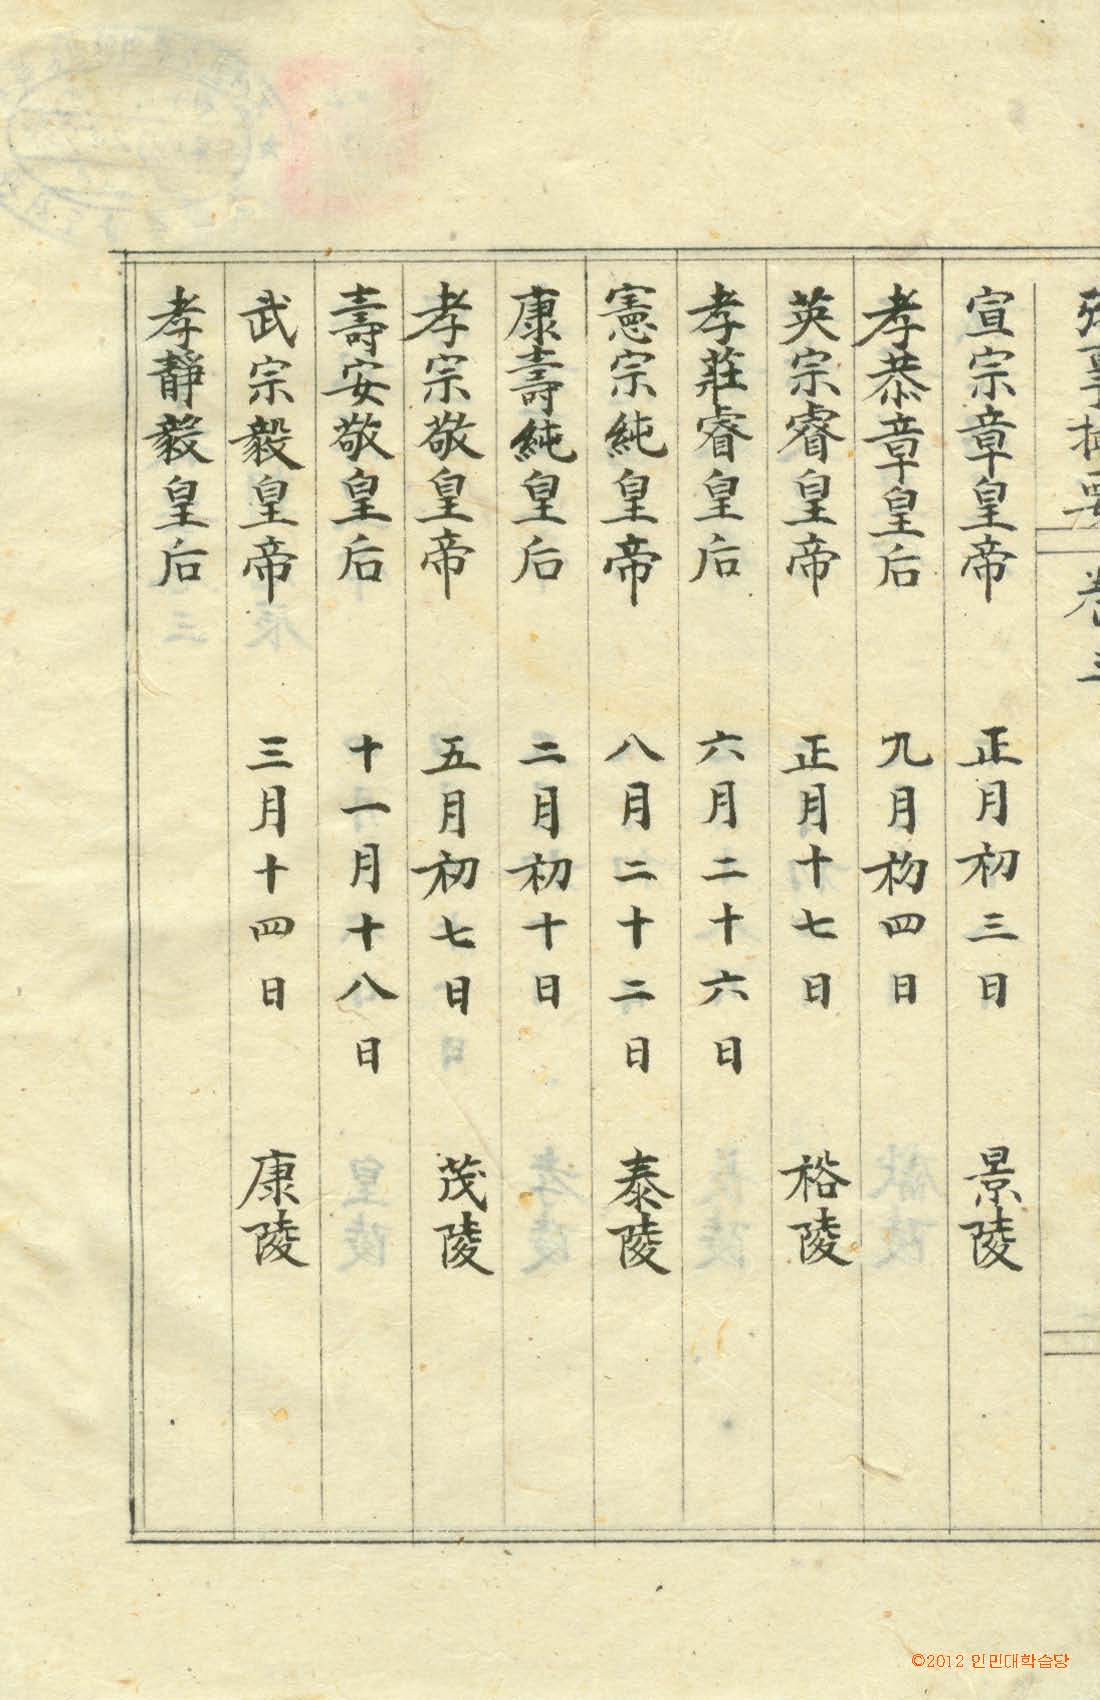 卷三
宣宗章皇帝 正月初三日 景陵
孝恭章皇后 九月初四日
英宗睿皇帝 正月十七日 裕陵
孝莊睿皇后 六月二十六日
憲宗純皇帝 八月二十二日 泰陵
康壽純皇后 二月初十日
孝宗敬皇帝 五月初七日 茂陵
壽安敬皇后 十一月十八日
武宗毅皇帝 三月十四日 康陵
孝靜毅皇后
©2012 인민대학습당